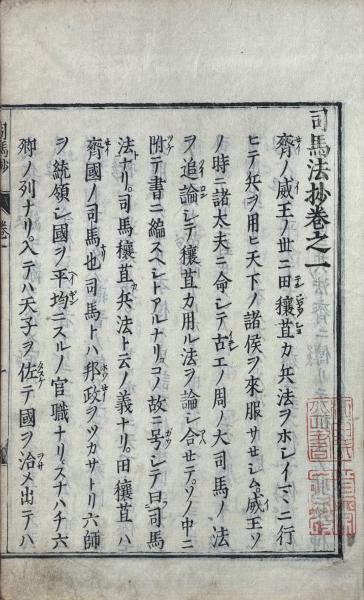 司馬法抄卷之一
齊ノ威王ノ世ニ田穰苴カ兵法ヲホシイマヽニ行
ヒテ兵ヲ用ヒ天下ノ諸侯ヲ來服サセシム威王ソ
ノ時ニ諸太夫ニ命シテ古エノ周ノ大司馬ノ法
ヲ追論シテ穰苴カ用ル法ヲ論シ合セテソノ中ニ
附テ書ニ編スヘシトアルナリコノ故ニ号シテ曰司馬
法ナリ司馬穰苴兵法ト云ノ義ナリ田穰苴ハ
齊國ノ司馬也司馬トハ邦政ヲツカサトリ六師
ヲ統領シ國ヲ平均ニスルノ官職ナリスナハチ六
卿ノ列ナリ入テハ天子ヲ佐テ國ヲ治メ出テハ
司馬抄
卷一